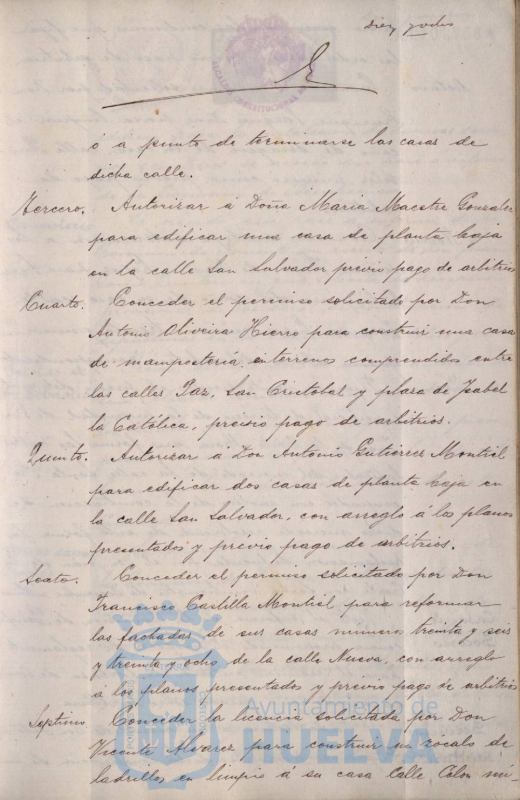 diez y ocho
ó a punto de terminarse las casas de
dicha calle.
Tercero. Autorizar á Doña Maria Macstre Gonzalez
para edificar una casa de planta baja
en la calle San Salvador previo pago de arbitrios
Cuarto. Conceder el permiso solicitado por Don
Antonio Oliveira Hierro para construir una casa
de mampostería en terrenos comprendidos entre
las calles Paz, San Cristobal y plaza de Isabel
la Católica, previo pago de arbitrios.
Quinto. Autorizar á Don Antonio Gutierrez Montiel
para edificar dos casas de planta baja en
la calle San Salvador, con arreglo á los planos
presentados y prévio pago de arbitrios.
Sexto. Conceder el permiso solicitado por Don
Francisco Castilla Montiel para reformar
las fachadas de sus casas numeros treinta y seis
y treinta y ocho de la calle Nueva, con arreglo
a los planos presentados y previo pago de arbitrios
Septimo Conceder la licencia solicitada por Don
Vicente Alvarez para construir un zócalo de
ladrillos en limpio á su casa Calle Colon nú-
Ayuntamiento de
HUELVA